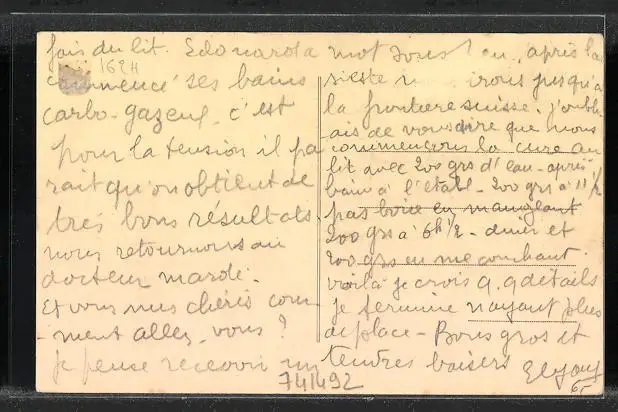 fais du lit. Edouard a
1624
commencé ses bains
carbo-gazeux c'est
pour la tension il pa
rait qu'on obtient de
très bons résultats.
nous retournons au
docteur mardi.
Et vous mes chéris com
-ment allez-vous?
je pense recevoir un
mot sous après la
sieste irons jusqu'à
la frontière suisse. j'oubli
ais de vous dire que nous
commençons la cure au
lit avec 200 grs d'eau - après
bain à l'étabt - 200 grs à 11 1/2
pas boire en mangeant
200 grs à 6h 1/2 - diner et
200 grs en me couchant
voilà je crois q.q détails
je termine n'ayant plus
de place - Bons gros et
tendres baisers
741492